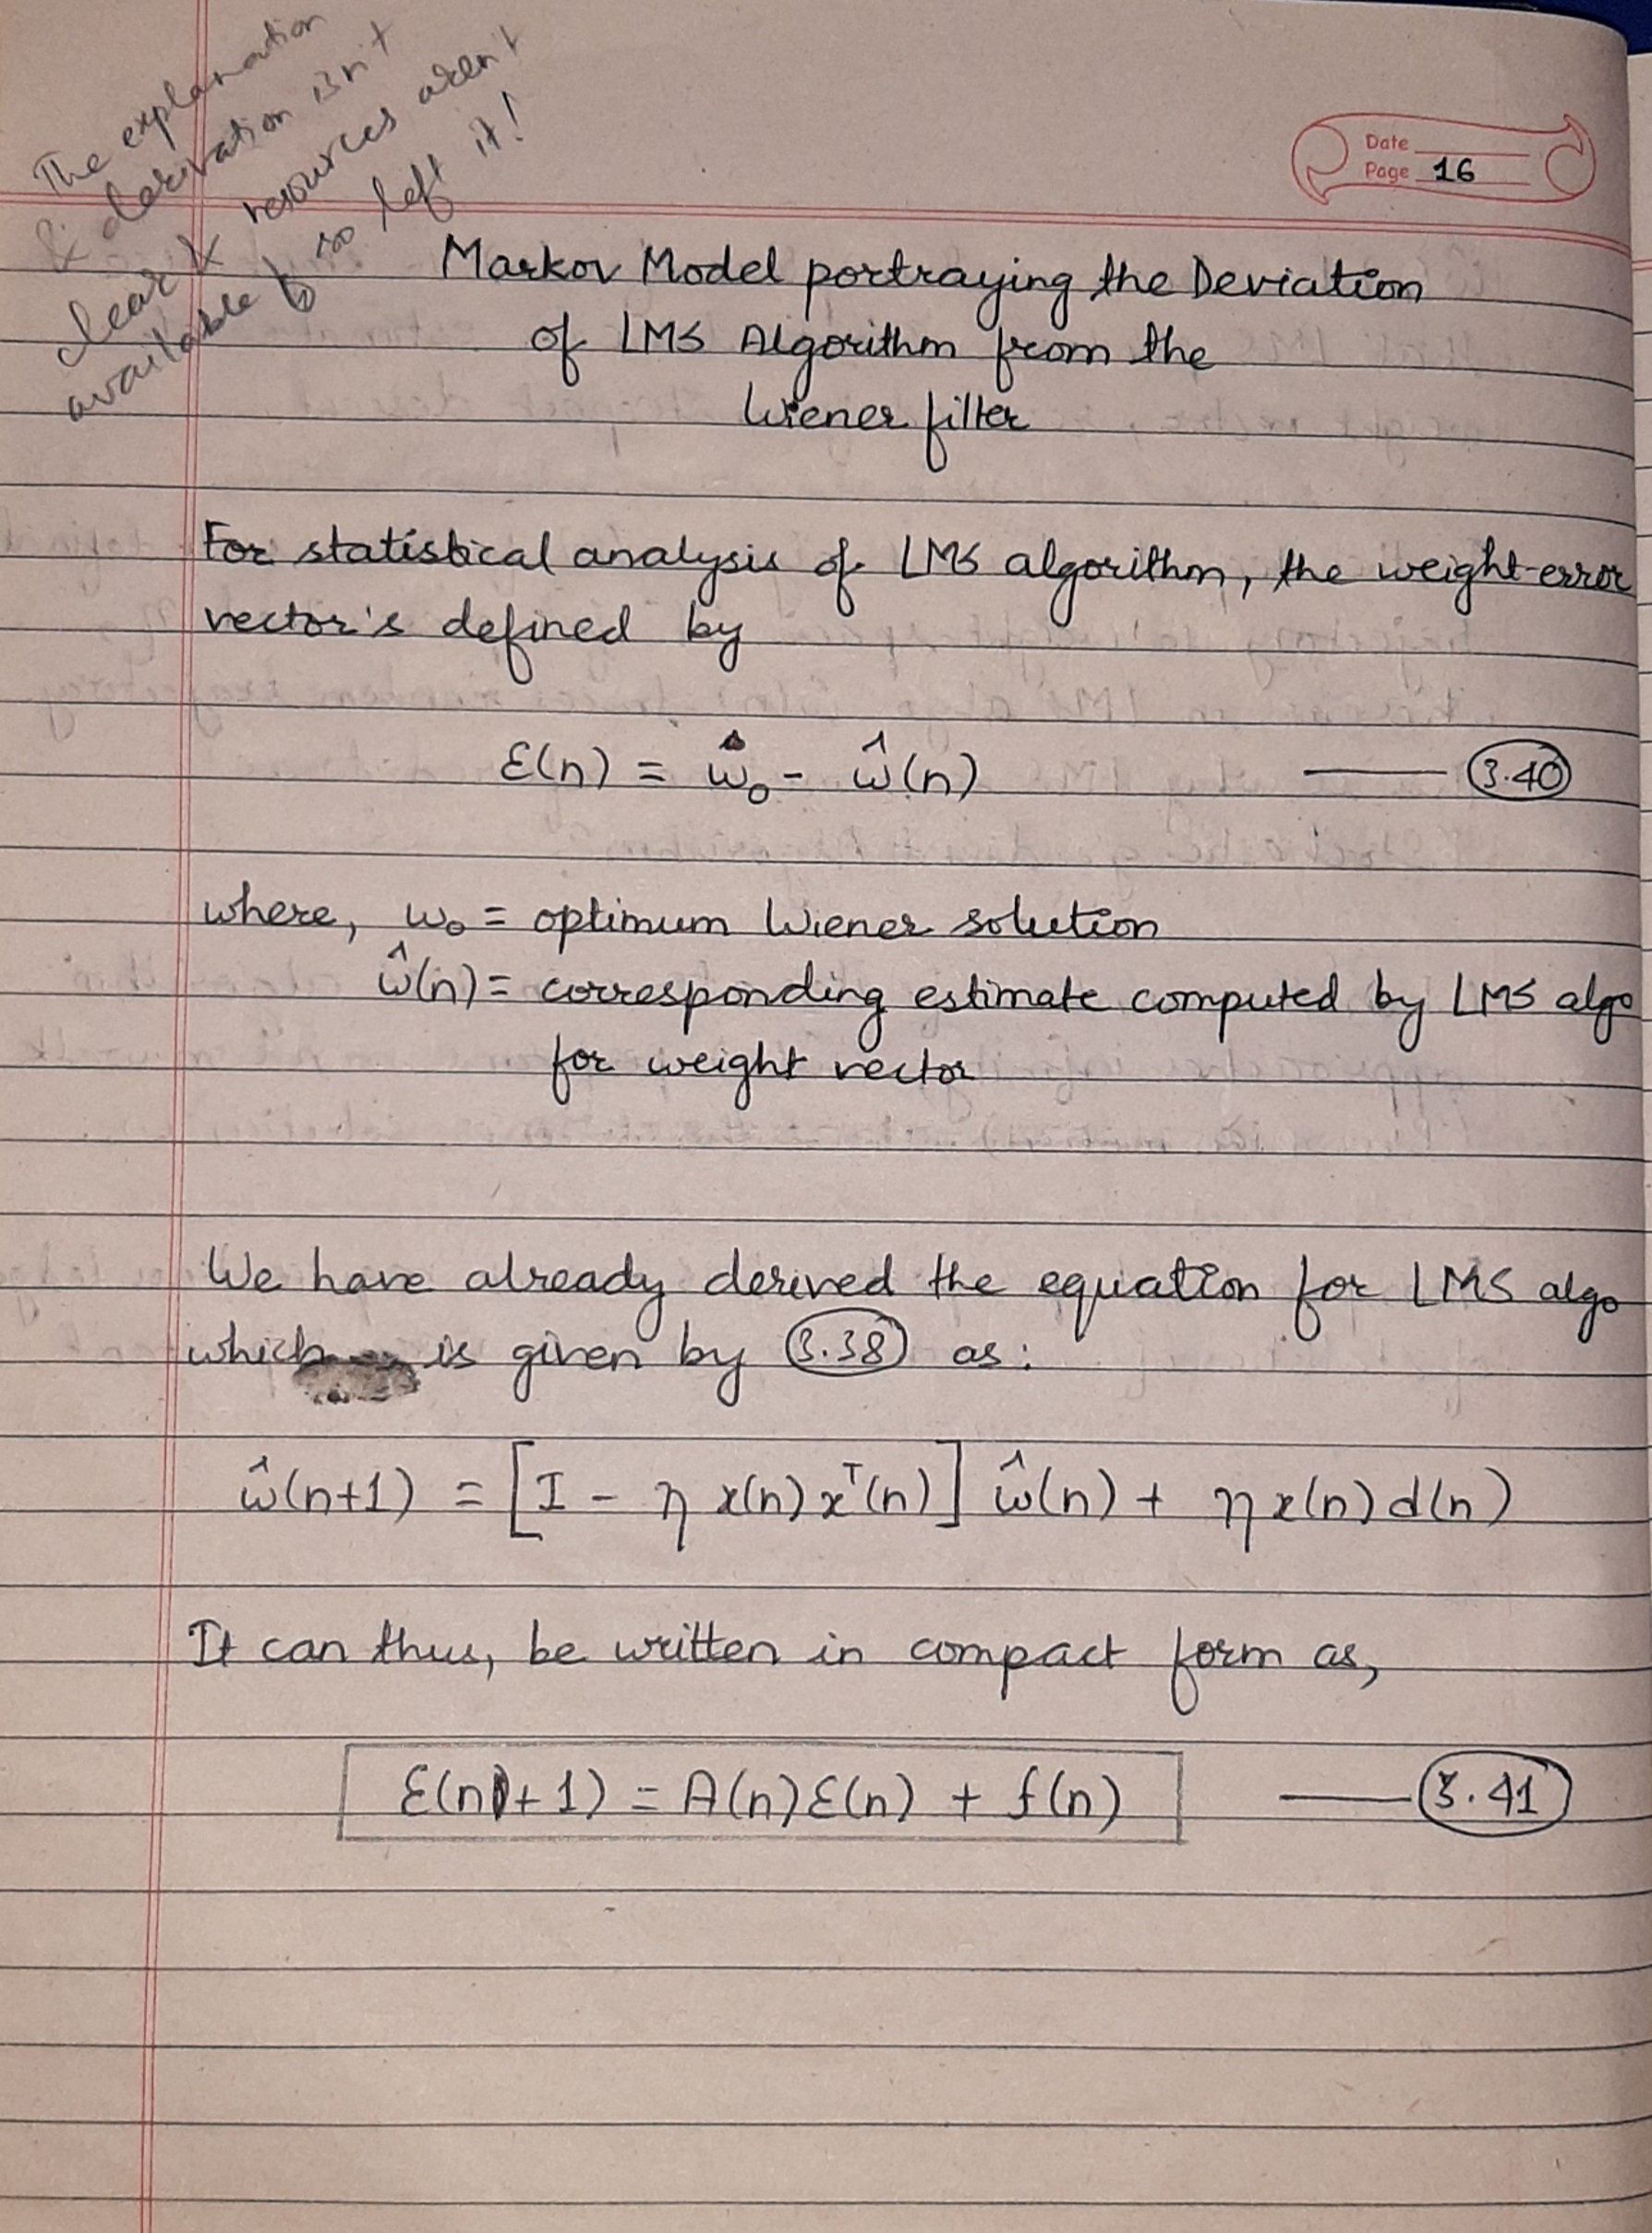 The explanation
& derivation isn't
clear & resources aren't
available so left it!
Date
Page 16
Markov Model portraying the Deviation
of LMS Algorithm from the
Wiener filter
For statistical analysis of LMS algorithm, the weight-error
vector's defined by
Ɛ(n) = w₀ - ŵ(n) —— (3.40)
where, w₀ = optimum Wiener solution
ŵ(n) = corresponding estimate computed by LMS algo
for weight vector
We have already derived the equation for LMS algo
which is given by (3.38) as:
ŵ(n+1) = [I - η x(n) xᵀ(n)] ŵ(n) + η x(n) d(n)
It can thus, be written in compact form as,
Ɛ(n+1) = A(n) Ɛ(n) + f(n) —— (3.41)